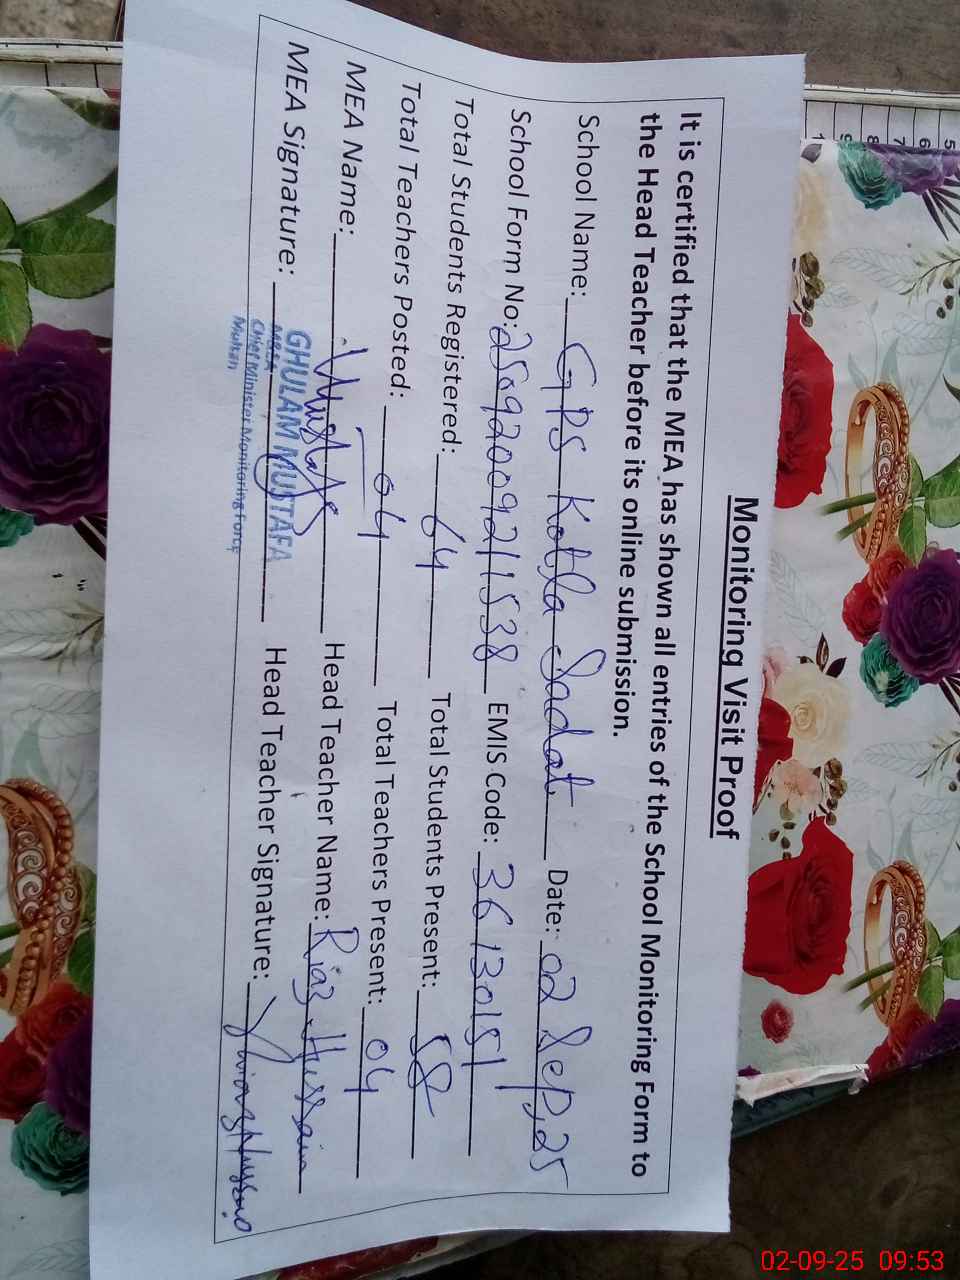 Monitoring Visit Proof
It is certified that the MEA has shown all entries of the School Monitoring Form to
the Head Teacher before its online submission.
School Name: GPS Kotla Sadat Date: 02 Sep, 25
School Form No: 25092009211538 EMIS Code: 36130151
Total Students Registered: 64 Total Students Present: 58
Total Teachers Posted: 04 Total Teachers Present: 04
MEA Name: Mustafa Head Teacher Name: Riaz Hussain
MEA Signature: Head Teacher Signature:
GHULAM MUSTAFA
MEA
Chief Minister Monitoring Force
Multan
5
6
7
8
9
02-09-25 09:53